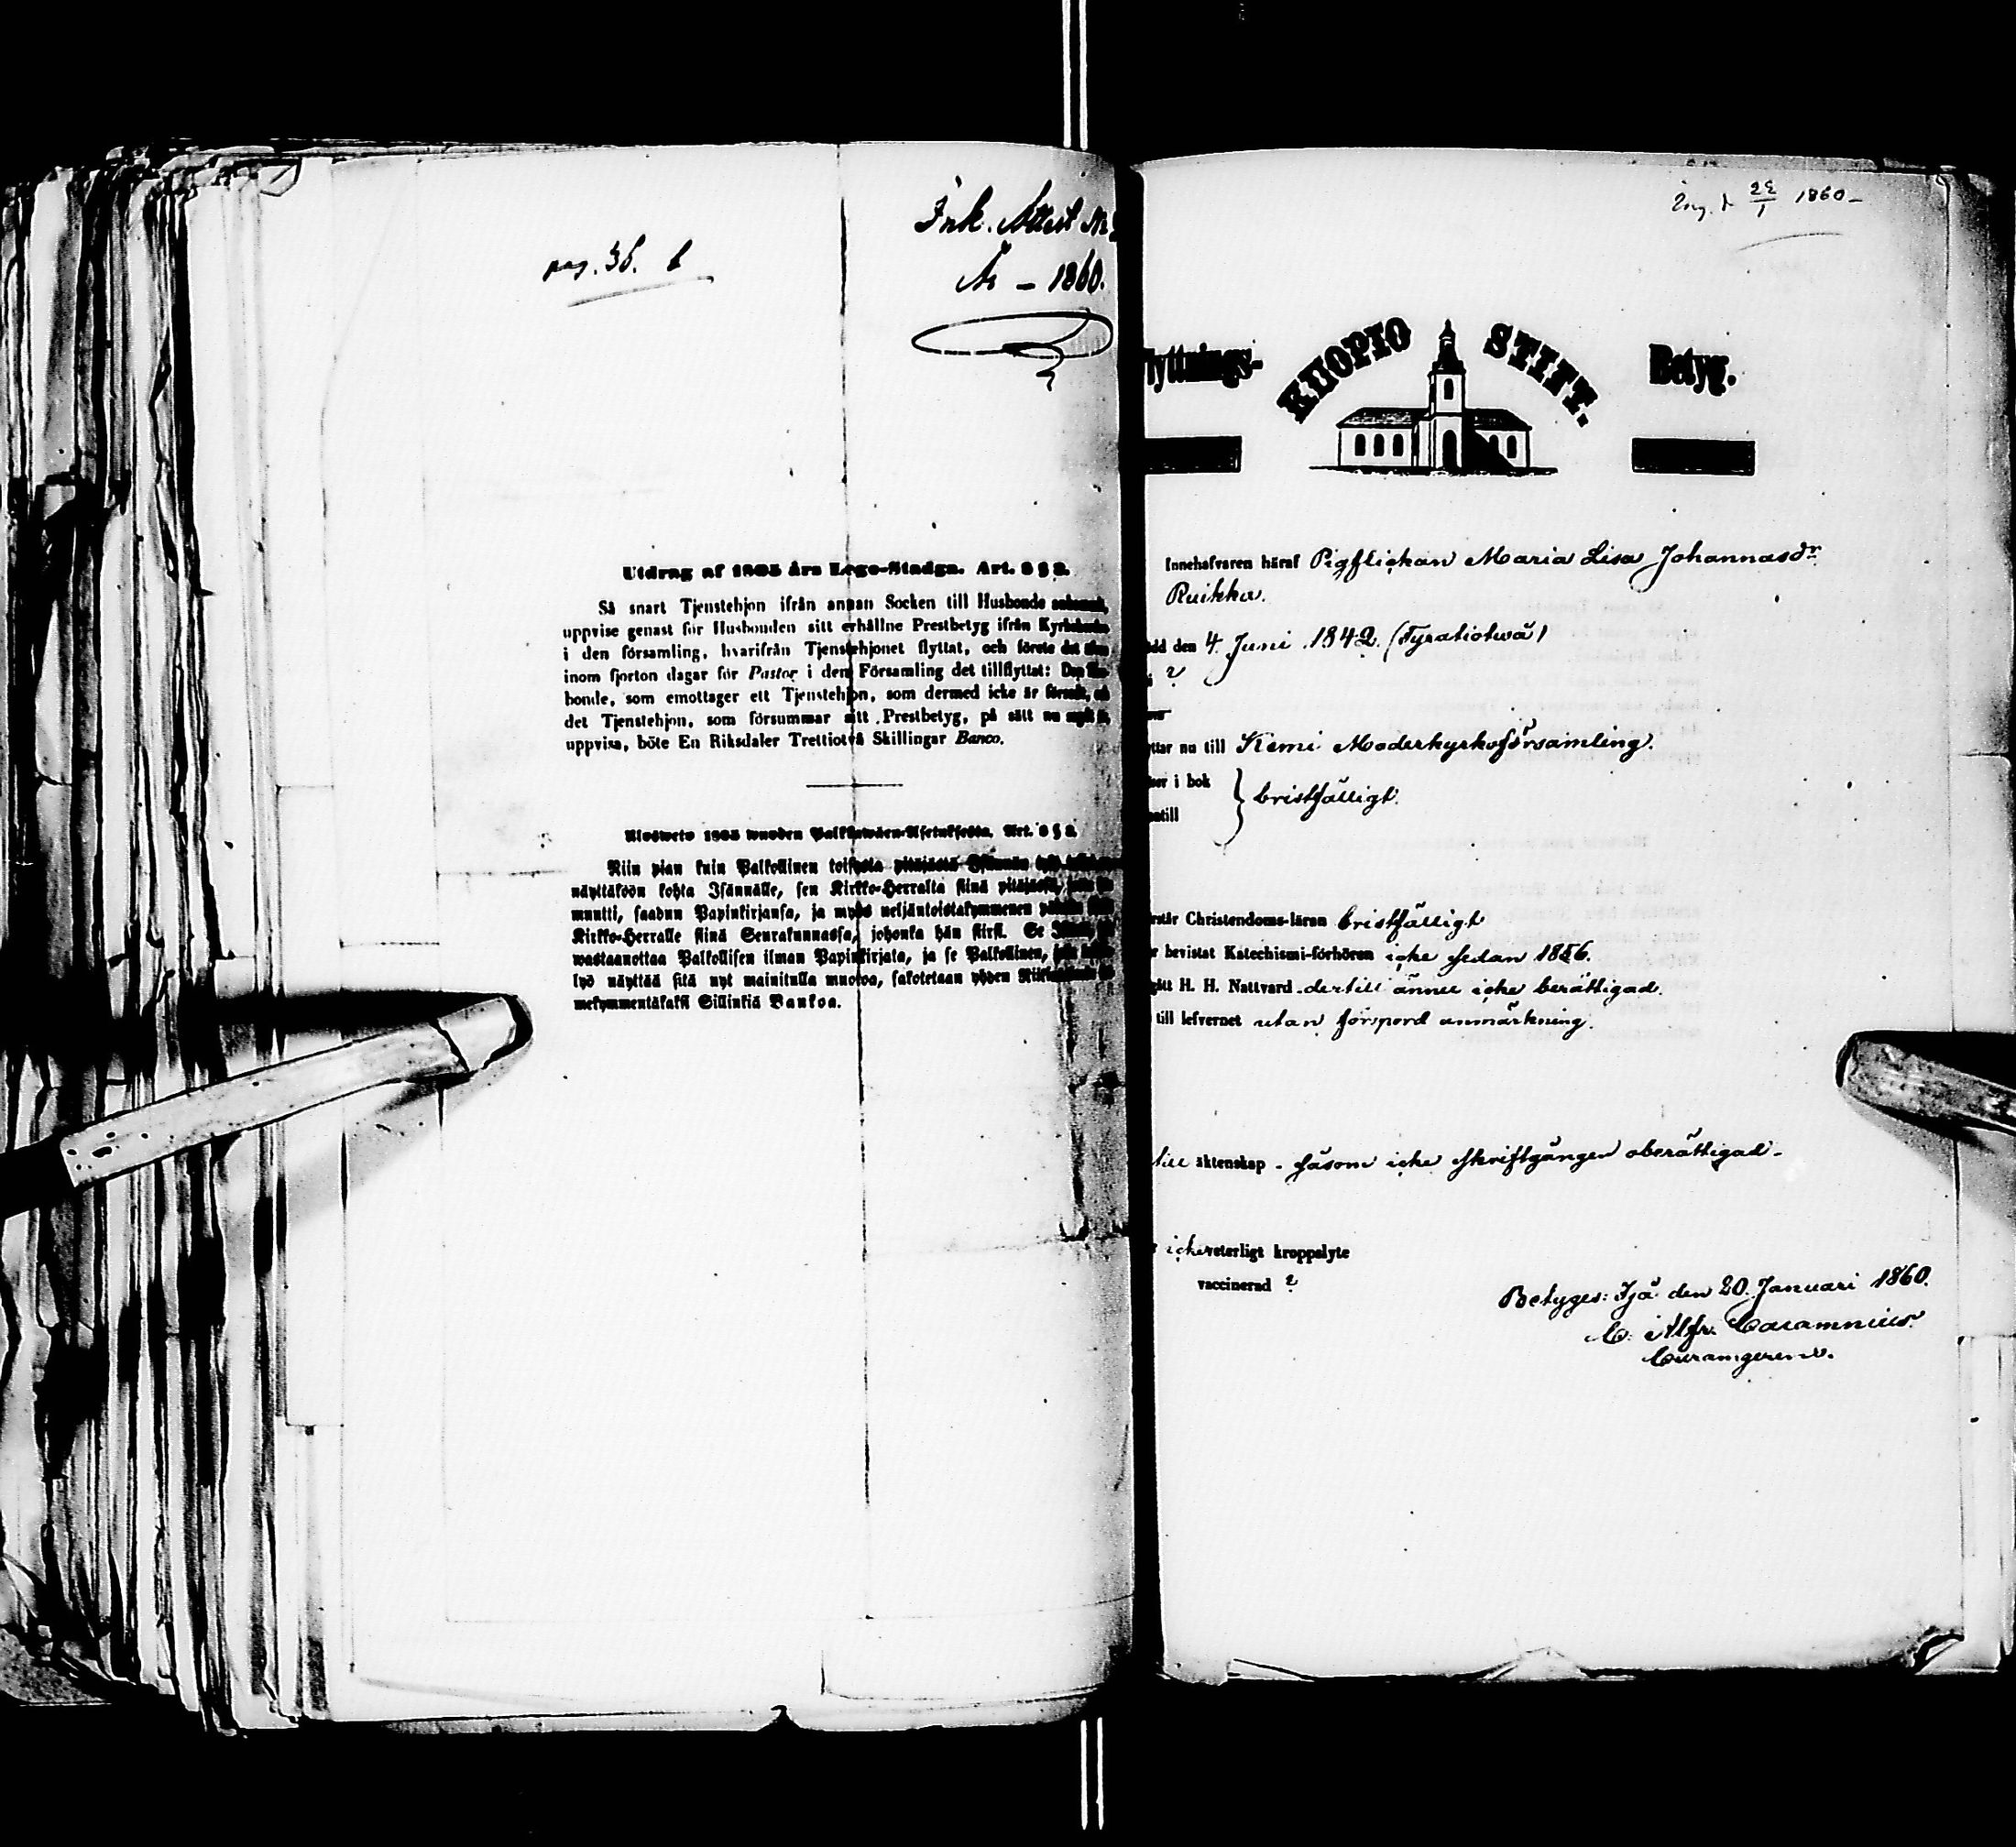 pag. 36. b
Ink. Attest No
År – 1860.
Utdrag af 1805 års Lego-Stadga. Art. 8 § 8.
Så snart Tjenstehjon ifrån annan Socken till Husbonde
uppvise genast för Husbonden sitt erhållne Prestbetyg ifrån
i den församling, hvarifrån Tjenstehjonet flyttat, och förete det
inom fjorton dagar för Pastor i den Församling det tillflyttat: Den
bonde, som emottager ett Tjenstehjon, som dermed icke är
det Tjenstehjon, som försummar sitt Prestbetyg, på sätt nu
uppvisa, böte En Riksdaler Trettiotvå Skillingar Banco.
Ulosweto 1805 wuoden Art. 8 § 8.
Niin pian kuin Palkollinen toisesta pitäjästä
näyttäköön kohta Isännälle, sen Kirkko-Herralta siinä
muutti, saadun Papinkirjansa, ja myös neljäntoistakymmenen
Kirkko-Herralle siinä Seurakunnassa, johonka hän siirsi. Se
wastaanottaa Palkollisen ilman Papinkirjata, ja se Palkollinen,
lyö näyttää sitä nyt mainitulla muotoa, sakotetaan yhden
mekymmentäkaksi Sillinkiä Bankoa.
Ing. d. 22/1 1860–
lyttnings- KUOPIO STIFT. Betyg.
Innehafvaren häraf Pigflickan Maria Lisa Johannasdr
Ruikka.
ödd den 4 Juni 1842. (Tyratiotwå)
i ?
yttar nu till Kemi Moderkyrkoförsamling.
ser i bok } bristfälligt.
antill
rstår Christendoms-läran bristfälligt
r bevistat Katechismi-förhören icke sedan 1856.
gått H. H. Nattvard dertill ännu icke berättigad.
till lefvernet utan försperd anmärkning.
till äktenskap - såsom icke skriftgången oberättigad -
icke veterligt kroppslyte
vaccinerad ?
Betyges: Ijå den 20 Januari 1860.
C. Alfr. Caramnius.
Curamgerens.